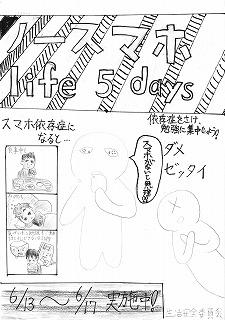 ノースマホ
life 5 days
スマホ依存症に
なると…
依存症をさけ、
勉強に集中しよう!
ダメ
ゼッタイ
スマホがないと無理!!
6/13～6/17 実施中!!
生活安全委員会